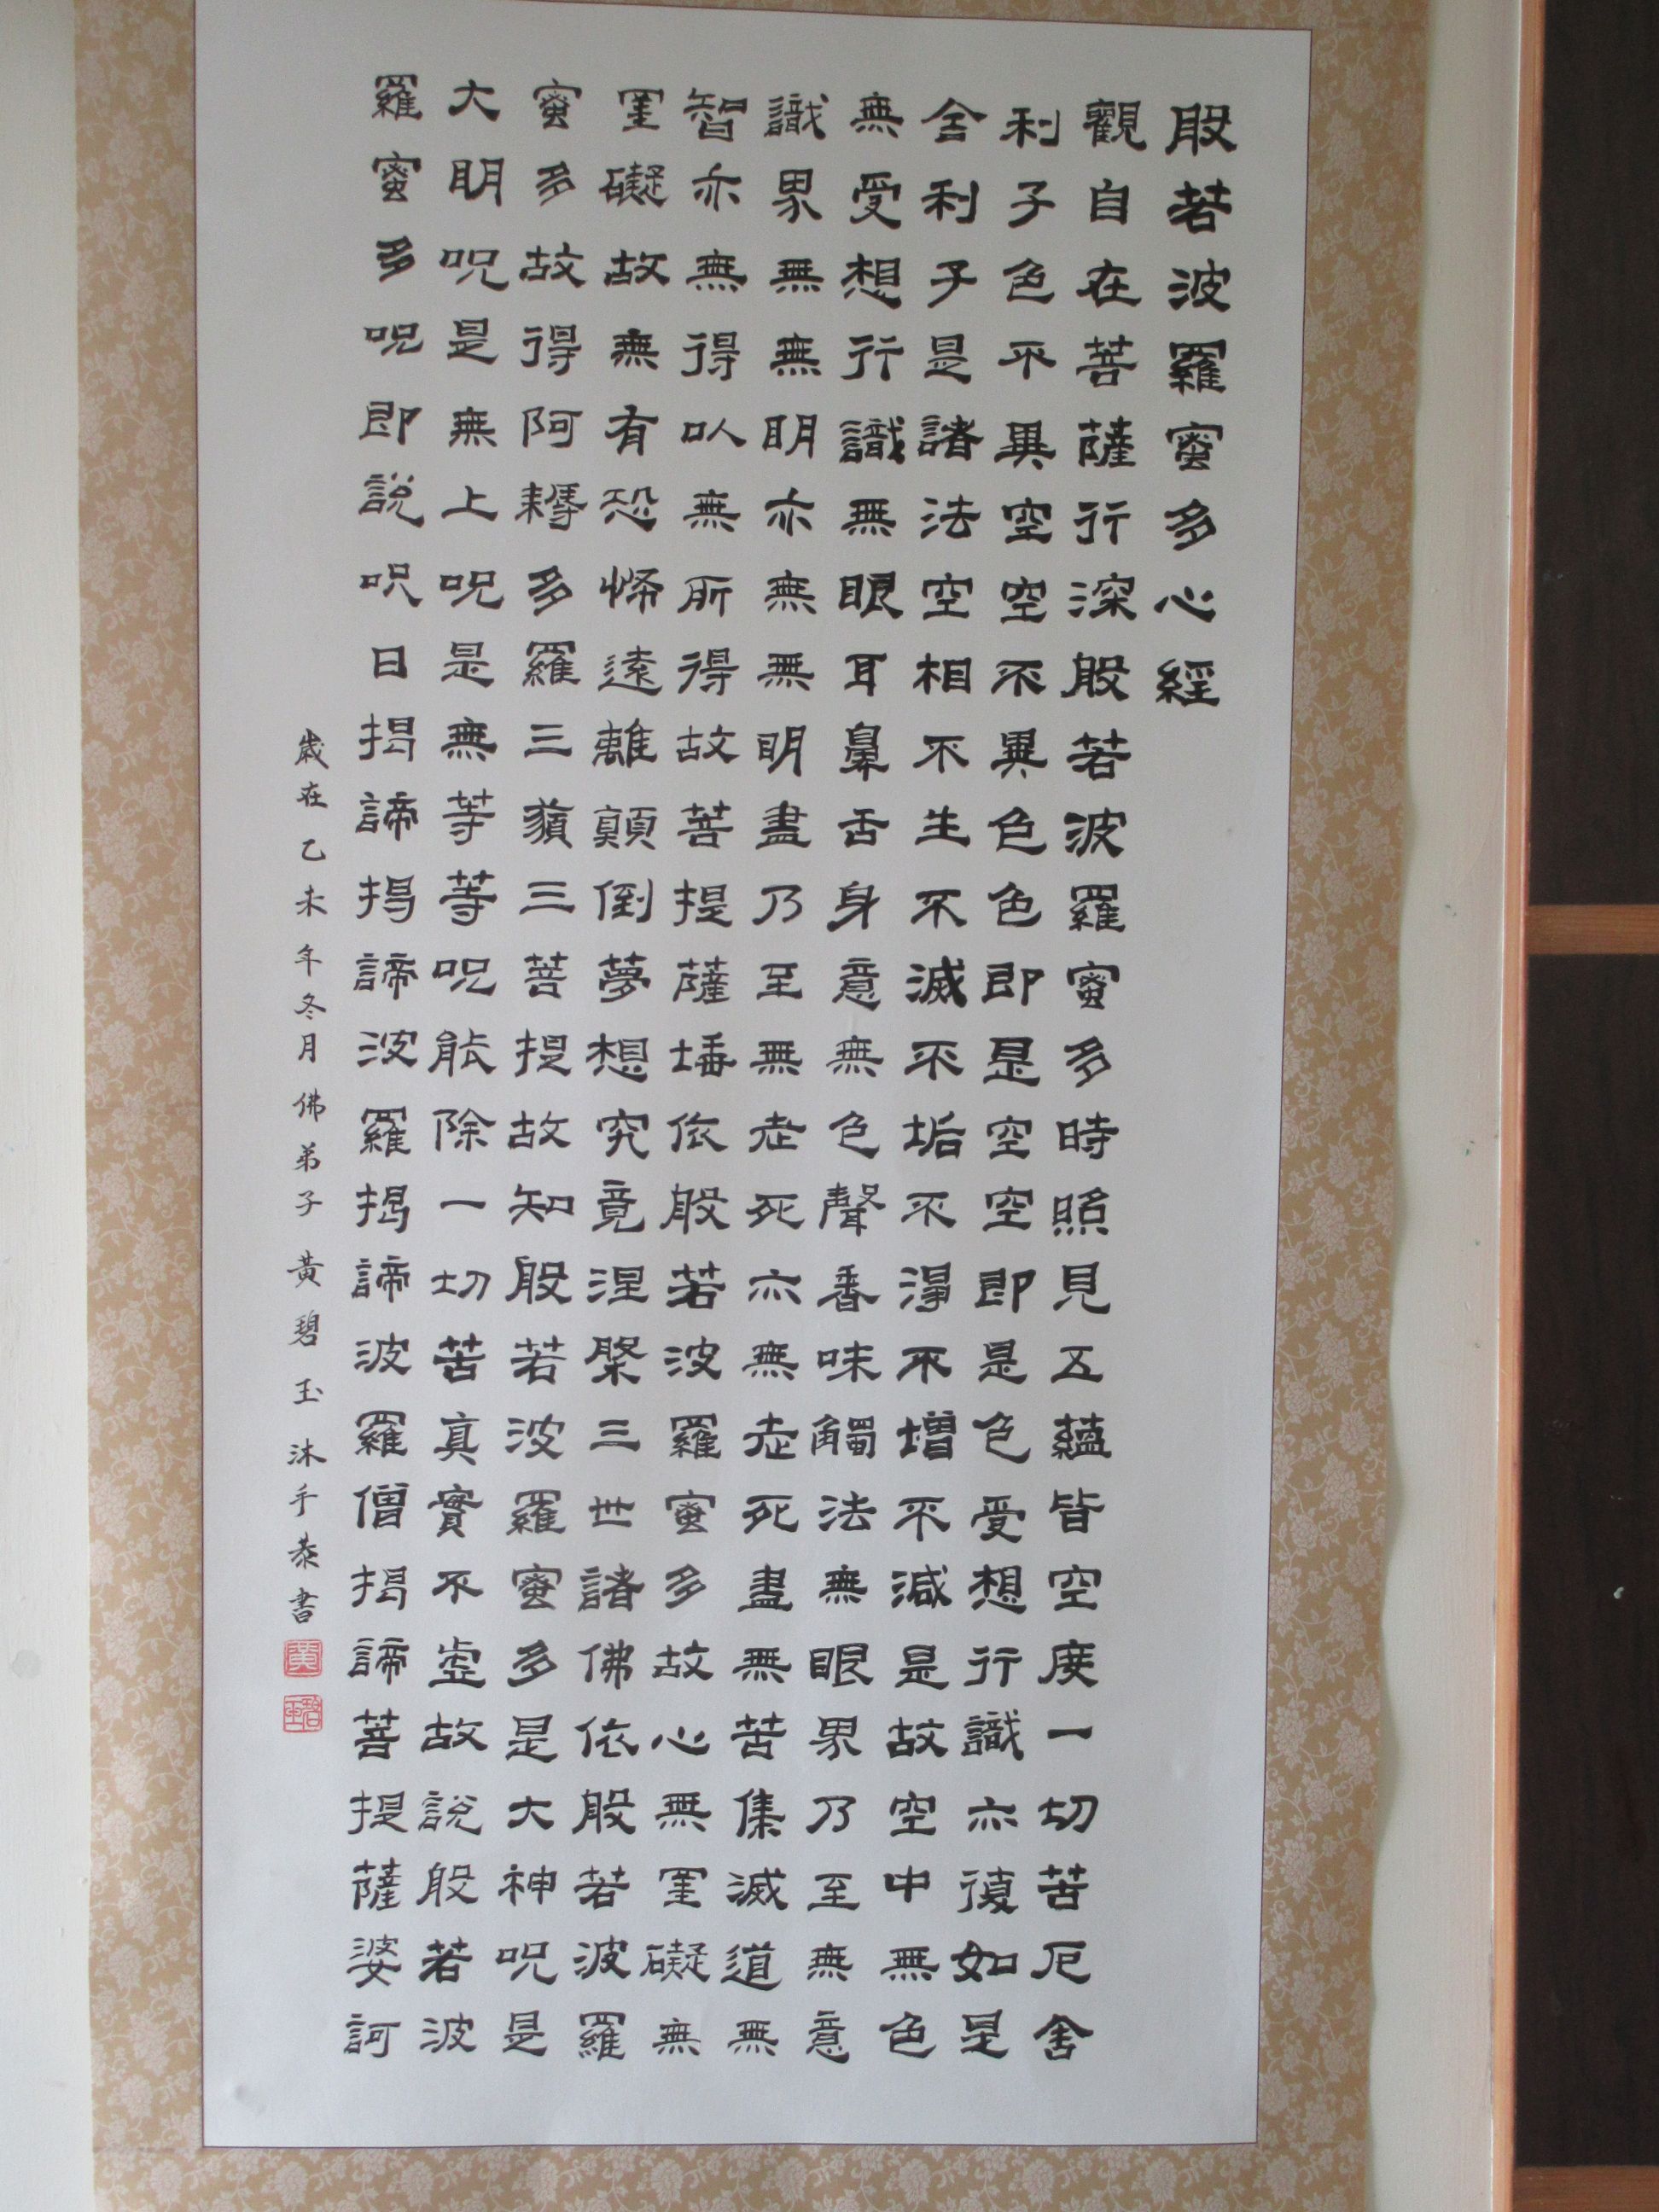 般若波羅蜜多心經
觀自在菩薩行深般若波羅蜜多時照見五蘊皆空度一切苦厄舍
利子色不異空空不異色色即是空空即是色受想行識亦復如是
舍利子是諸法空相不生不滅不垢不淨不增不減是故空中無色
無受想行識無眼耳鼻舌身意無色聲香味觸法無眼界乃至無意
識界無無明亦無無明盡乃至無老死亦無老死盡無苦集滅道無
智亦無得以無所得故菩提薩埵依般若波羅蜜多故心無罣礙無
罣礙故無有恐怖遠離顛倒夢想究竟涅槃三世諸佛依般若波羅
蜜多故得阿耨多羅三藐三菩提故知般若波羅蜜多是大神呪是
大明呪是無上呪是無等等呪能除一切苦真實不虛故說般若波
羅蜜多呪即說呪曰揭諦揭諦波羅揭諦波羅僧揭諦菩提薩婆訶
歲在乙未年冬月佛弟子黃碧玉沐手恭書
黃
碧玉